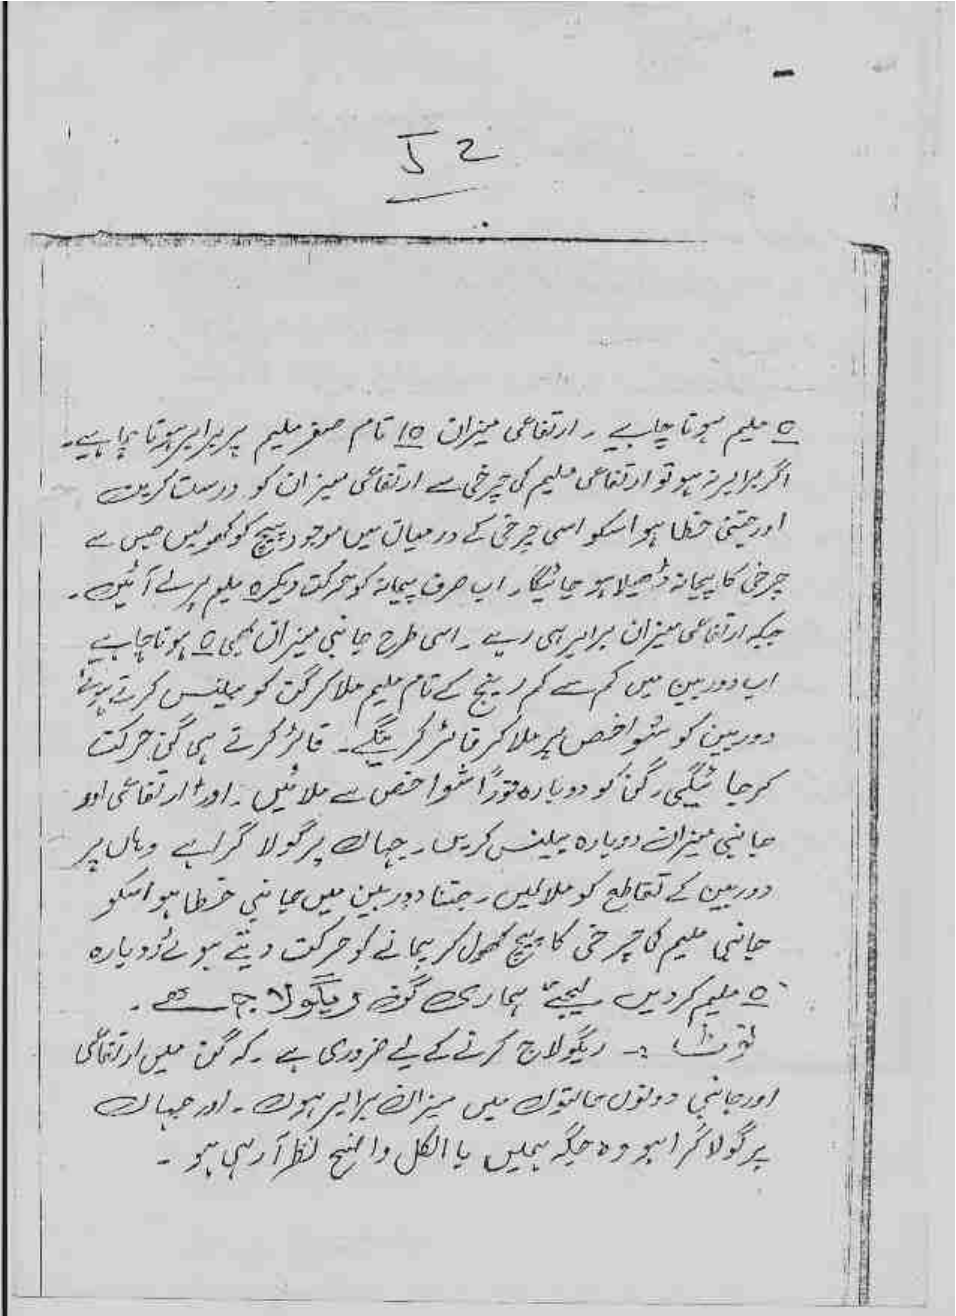 52
0 ملیم ہونا چاہیے ۔ ارتفاعی میزان 10 تام صفر ملیم پر برابر ہونا چاہیے۔
اگر برابر نہ ہو تو ارتفاعی ملیم کی چرخی سے ارتفاعی میزان کو درست کریں
اور جتنی خطا ہو اسکو اسی چرخی کے درمیان میں موجود پیچ کو کھولیں جس سے
چرخی کا پیمانہ ڈھیلا ہو جائیگا ۔ اب صرف پیمانہ کو حرکت دیکر 0 ملیم پر لے آئیں ۔
جبکہ ارتفاعی میزان برابر ہی رہے ۔ اسی طرح جانبی میزان بھی 0 ہونا چاہیے
اب دوربین میں کم سے کم رینج کے تام ملیم ملا کر گن کو بیلنس کرتے ہوئے
دوربین کو شواخص پر ملا کر فائر کرینگے ۔ فائر کرتے ہی گن حرکت
کر جائیگی ۔ گن کو دوبارہ فوراً شواخص سے ملائیں ۔ اور ارتفاعی اور
جانبی میزان دوبارہ بیلنس کریں ۔ جہاں پر گولا گرا ہے وہاں پر
دوربین کے تقاطع کو ملا لیں ۔ جتنا دوربین میں جانبی خطا ہو اسکو
جانبی ملیم کی چرخی کا پیچ کھول کر پیمانے کو حرکت دیتے ہوئے دوبارہ
0 ملیم کر دیں لیجئے ہماری گن ریگولاج ہے ۔
نوٹ :۔ ریگولاج کرنے کے لیے ضروری ہے ۔ کہ گن میں ارتفاعی
اور جانبی دونوں حالتوں میں میزان برابر ہوں ۔ اور جہاں
پر گولا گرا ہو وہ جگہ ہمیں بالکل واضح نظر آ رہی ہو ۔